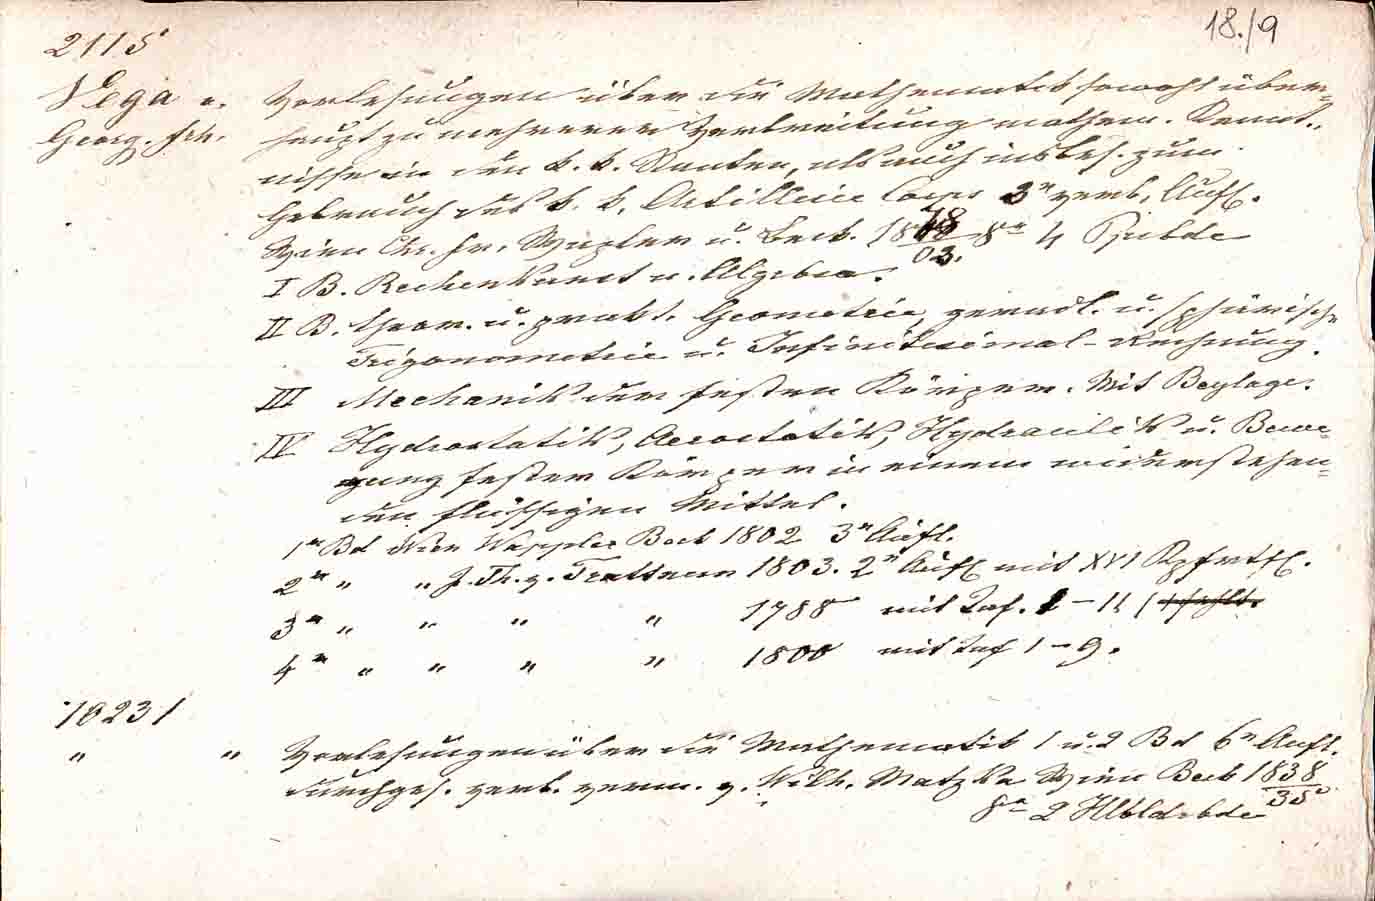 18./9
2115
Vega v. Vorlesungen über die Mathematik sowohl über=
Georg. Frh. haupt zu mehrerer Verbreitung mathem. Kennt=
nisse in den k. k. Staaten, als auch insbes. zum
Gebrauch des k. k. Artillerie Corps 3n verb. Aufl.
Wien Chr. Fr. Wappler u. Beck. 8n 4
03.
I B. Rechenkunst u. Algebra.
II B. theor. u. prakt. Geometrie, geradl. u. sphärische
Trigonometrie u. Infinitesimal-Rechnung.
III Mechanik der festen Körper. Mit Beylage.
IV Hydrostatik, Aerostatik, Hydraulik u. Bewe=
gung fester Körper in einem widerstehen=
den flüssigen Mittel.
1n Bd Wien Wappler Beck 1802 3n Aufl.
2n " " J. Th. v. Trattnern 1803. 2n Aufl mit XVI Kpfrtfl.
3n " " " " 1788 mit Taf. 1-11
4n " " " " 1800 mit Taf 1-9.
10231
" " Vorlesungen über die Mathematik 1 u. 2 Bd 6n Aufl.
durchges. verb. verm. v. Wilh. Matzka Wien Beck 1838
35
8n 2 Hlbldrbde